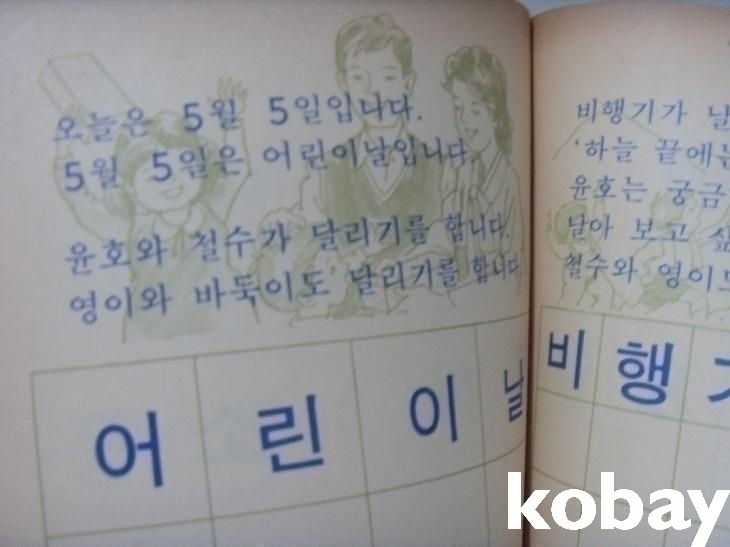 오늘은 5월 5일입니다.
5월 5일은 어린이날입니다.
윤호와 철수가 달리기를 합니다.
영이와 바둑이도 달리기를 합니다.
어 린 이 날
비행기가 날
'하늘 끝에는
윤호는 궁금
날아 보고 싶
철수와 영이도
비 행
kobay